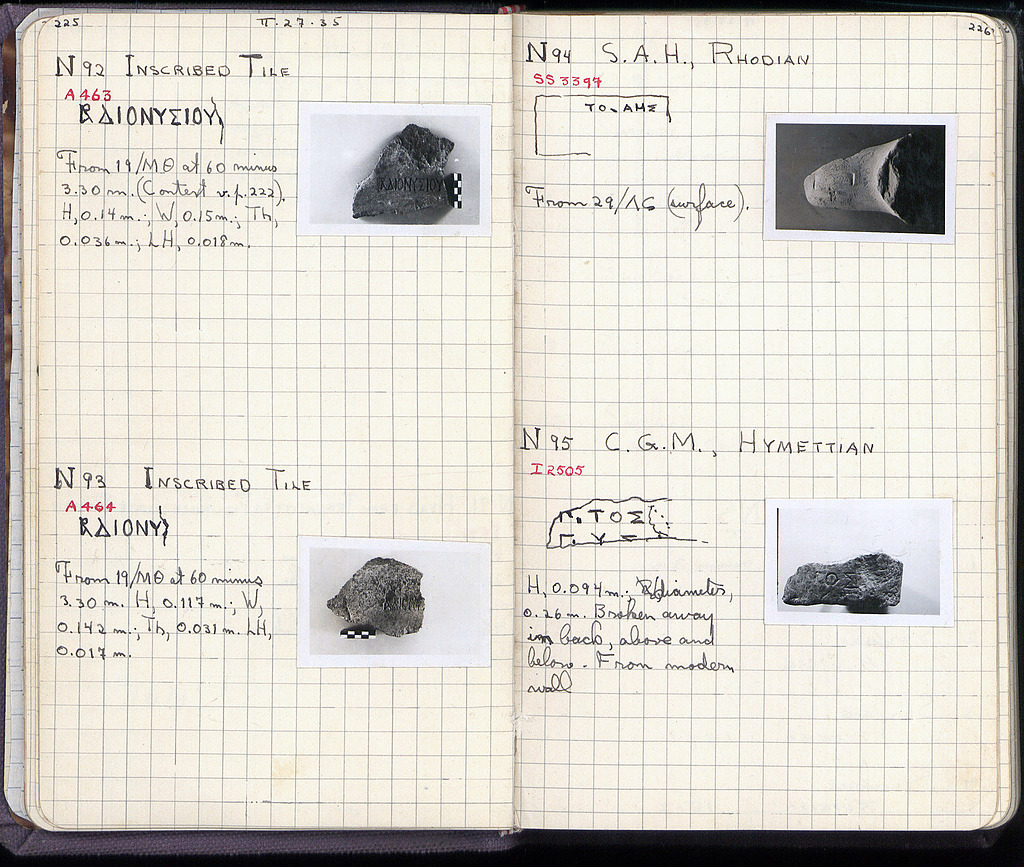 225
II·27·35
N 92 INSCRIBED TILE
A 463
ΒΔΙΟΝΥΣΙΟΥ
From 19/ΜΘ at 60 minus
3.30 m. (Context v. p. 222).
H, 0.14 m.; W, 0.15 m.; Th,
0.036 m.; LH, 0.018 m.
ΔΙΟΝΥΣΙΟΥ
N 93 INSCRIBED TILE
A 464
ΒΔΙΟΝΥ
From 19/ΜΘ at 60 minus
3.30 m. H, 0.117 m.; W,
0.142 m.; Th, 0.031 m. LH,
0.017 m.
226
N 94 S.A.H., RHODIAN
SS 3397
From 29/ΛΣ (surface).
N 95 C.G.M., HYMETTIAN
I 2505
Π.ΤΟΣ
Γ.ΥΣ
H, 0.094 m.; diameter,
0.26 m. Broken away
in back, above and
below. From modern
wall
ΤΟΣ